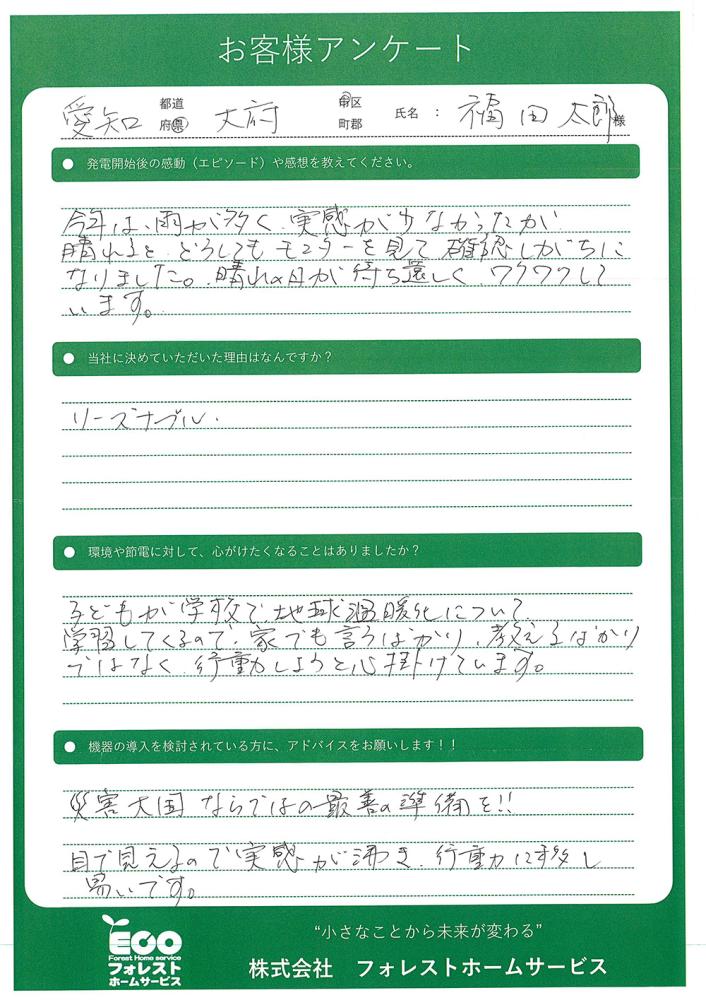 お客様アンケート
愛知 都道府県 大府 市区町郡 氏名 : 福田太郎様
● 発電開始後の感動（エピソード）や感想を教えてください。
今年は、雨が多く、実感が少なかったが
晴れると、どうしてもモニターを見て確認しがちに
なりました。晴れの日が待ち遠しく、ワクワクして
います。
● 当社に決めていただいた理由はなんですか？
リーズナブル．
● 環境や節電に対して、心がけたくなることはありましたか？
子どもが学校で地球温暖化について
学習してくるので、家でも言うばかり、教えるばかり
ではなく、行動しようと心掛けています。
● 機器の導入を検討されている方に、アドバイスをお願いします！！
災害大国ならではの最善の準備を!!
目で見えるので実感が沸き、行動に移し
易いです。
ECO
Forest Home service
フォレスト
ホームサービス
“小さなことから未来が変わる”
株式会社 フォレストホームサービス